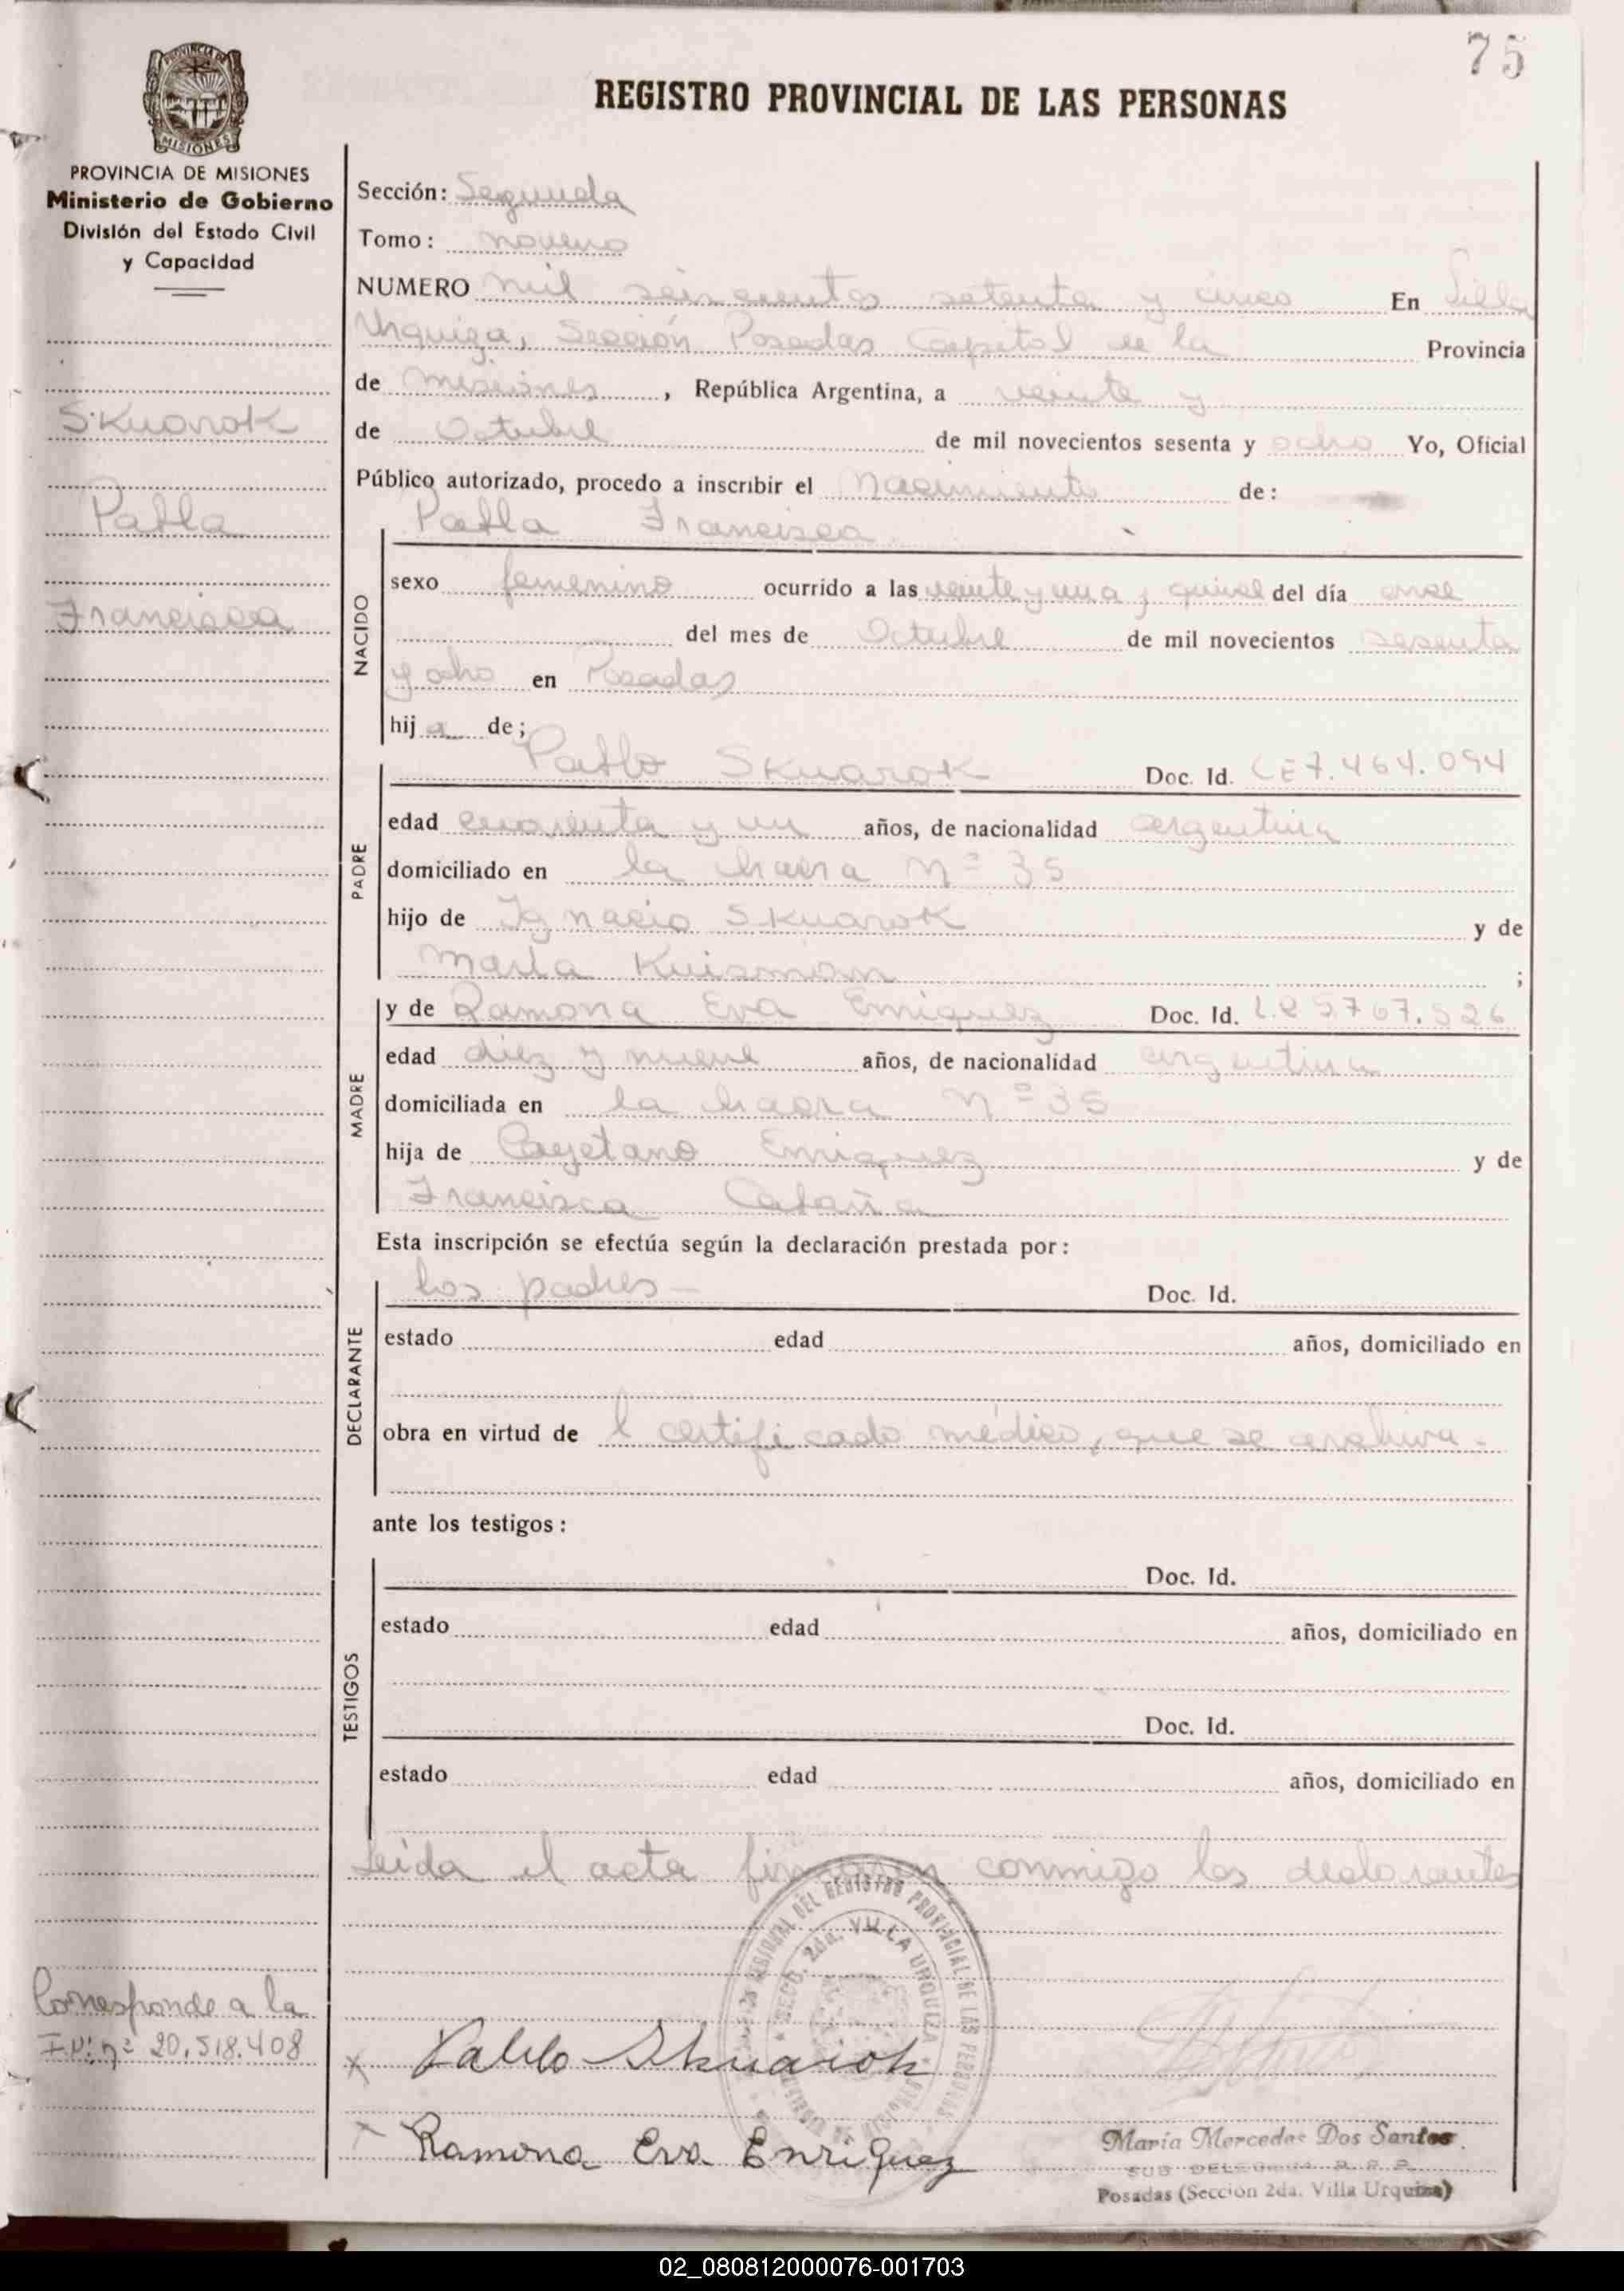 75
REGISTRO PROVINCIAL DE LAS PERSONAS
MISIONES
PROVINCIA DE MISIONES
Ministerio de Gobierno
División del Estado Civil
y Capacidad
Skuarok
Pabla
Francisca
Sección: Segunda
Tomo: noveno
NUMERO mil seiscientos setenta y cinco En Villa
Urquiza, Sección Posadas Capital de la Provincia
de Misiones, República Argentina, a veinte y
de Octubre de mil novecientos sesenta y ocho Yo, Oficial
Público autorizado, procedo a inscribir el Nacimiento de:
NACIDO
Pabla Francisca
sexo femenino ocurrido a las veinte y una y quince del día once
del mes de Octubre de mil novecientos sesenta
y ocho en Posadas
hija de;
PADRE
Pablo Skuarok Doc. Id. CE 7.464.094
edad cuarenta y un años, de nacionalidad argentina
domiciliado en la chacra Nº 35
hijo de Ignacio Skuarok y de
María Kuisman ;
MADRE
y de Ramona Eva Enriquez Doc. Id. L.C 5.767.526
edad diez y nueve años, de nacionalidad argentina
domiciliada en la chacra Nº 35
hija de Cayetano Enriquez y de
Francisca Cabaña
Esta inscripción se efectúa según la declaración prestada por:
DECLARANTE
los padres - Doc. Id.
estado edad años, domiciliado en
obra en virtud de l certificado médico, que se archiva.-
ante los testigos:
TESTIGOS
Doc. Id.
estado edad años, domiciliado en
Doc. Id.
estado edad años, domiciliado en
Leida el acta firmaron conmigo los declarantes
DEL REGISTRO PROVINCIAL DE LAS PERSONAS
SECC. 2da. VILLA URQUIZA
Corresponde a la
nº 20.518.408
x Pablo Skuarok
x Ramona Eva Enriquez
María Mercedes Dos Santos
SUB DELEGADA R. P. P.
Posadas (Sección 2da. Villa Urquiza)
02_080812000076-001703